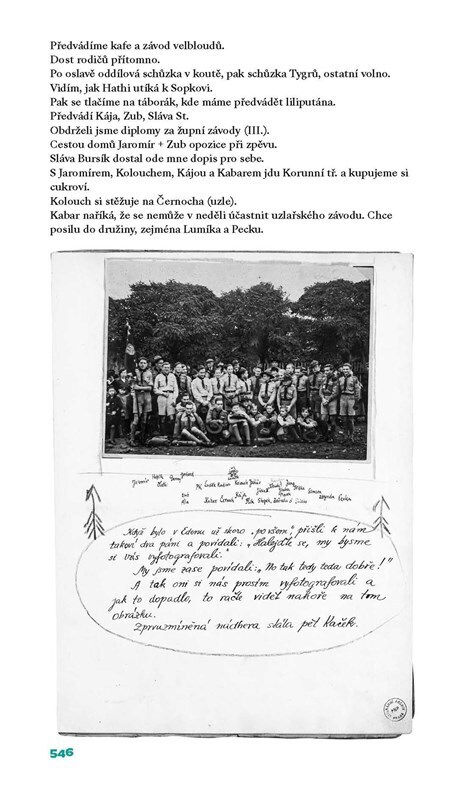 Předvádíme kafe a závod velbloudů.
Dost rodičů přítomno.
Po oslavě oddílová schůzka v koutě, pak schůzka Tygrů, ostatní volno.
Vidím, jak Hathi utíká k Sopkovi.
Pak se tlačíme na táborák, kde máme předvádět liliputána.
Předvádí Kája, Zub, Sláva St.
Obdrželi jsme diplomy za župní závody (III.).
Cestou domů Jaromír + Zub opozice při zpěvu.
Sláva Bursík dostal ode mne dopis pro sebe.
S Jaromírem, Kolouchem, Kájou a Kabarem jdu Korunní tř. a kupujeme si
cukroví.
Kolouch si stěžuje na Černocha (uzle).
Kabar naříká, že se nemůže v neděli účastnit uzlařského závodu. Chce
posilu do družiny, zejména Lumíka a Pecku.
Jaromír
Kabar Černoch Kája
Když bylo v Edenu už skoro „po všem", přišli k nám
takoví dva páni a povídali: „Halejďte se, my bysme
si vás vyfotografovali."
My jsme zase povídali: „No tak tedy teda dobře!"
A tak oni si nás prostě vyfotografovali a
jak to dopadlo, to račte vidět nahoře na tom
obrázku.
Zprvuzmíněná nádhera stála pět Kaček.
546